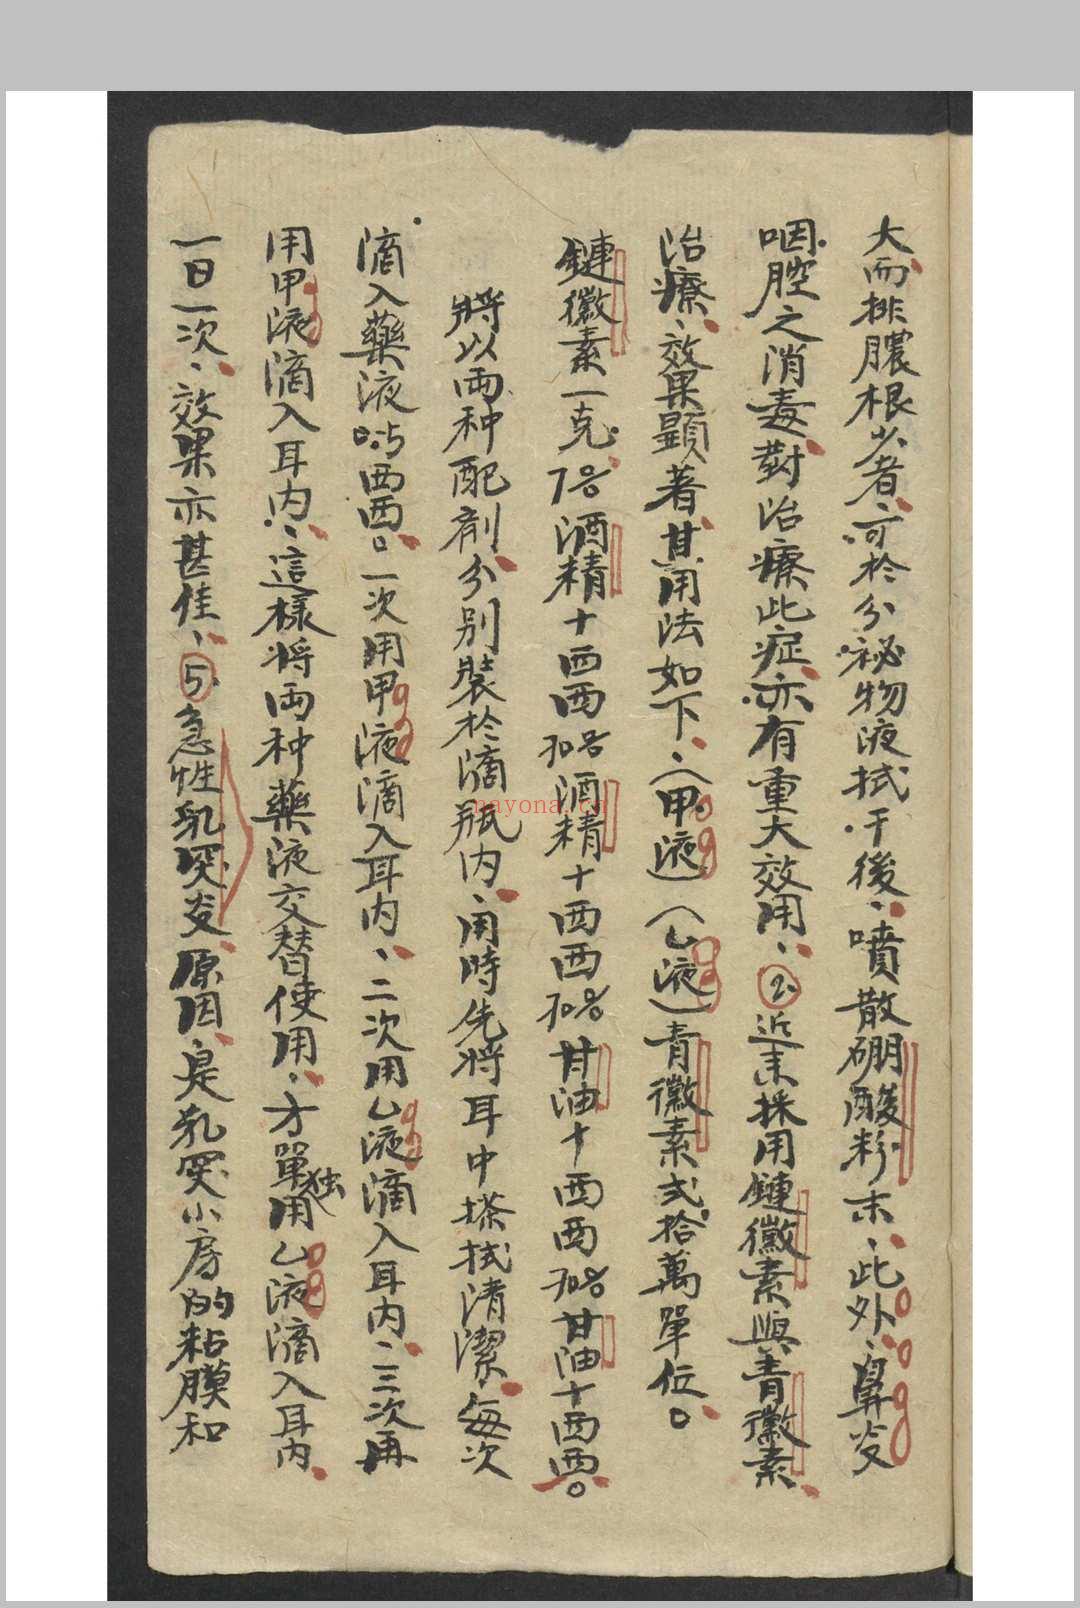 大而排膿根少者、可於分祕物液拭干後、噴散硼酸粉末、此外、鼻炎
咽腔之消毒對治療此症亦有重大效用、②近來採用鏈黴素與青黴素
治療、效果顯著其用法如下、（甲液）（乙液）青黴素弍拾萬單位。
鏈黴素一克、70%酒精十西西70%酒精十西西70%甘油十西西70%甘油十西西。
將以兩种配劑分别裝於滴瓶内、用時先将耳中搽拭清潔、每次
滴入藥液0.5西西。一次用甲液滴入耳内、二次用乙液滴入耳内、三次再
用甲液滴入耳内、這樣将両种藥液交替使用、方單独用乙液滴入耳内、
一日一次、效果亦甚佳、⑤急性乳突炎原因、是乳突小房的粘膜和
nayona.cn